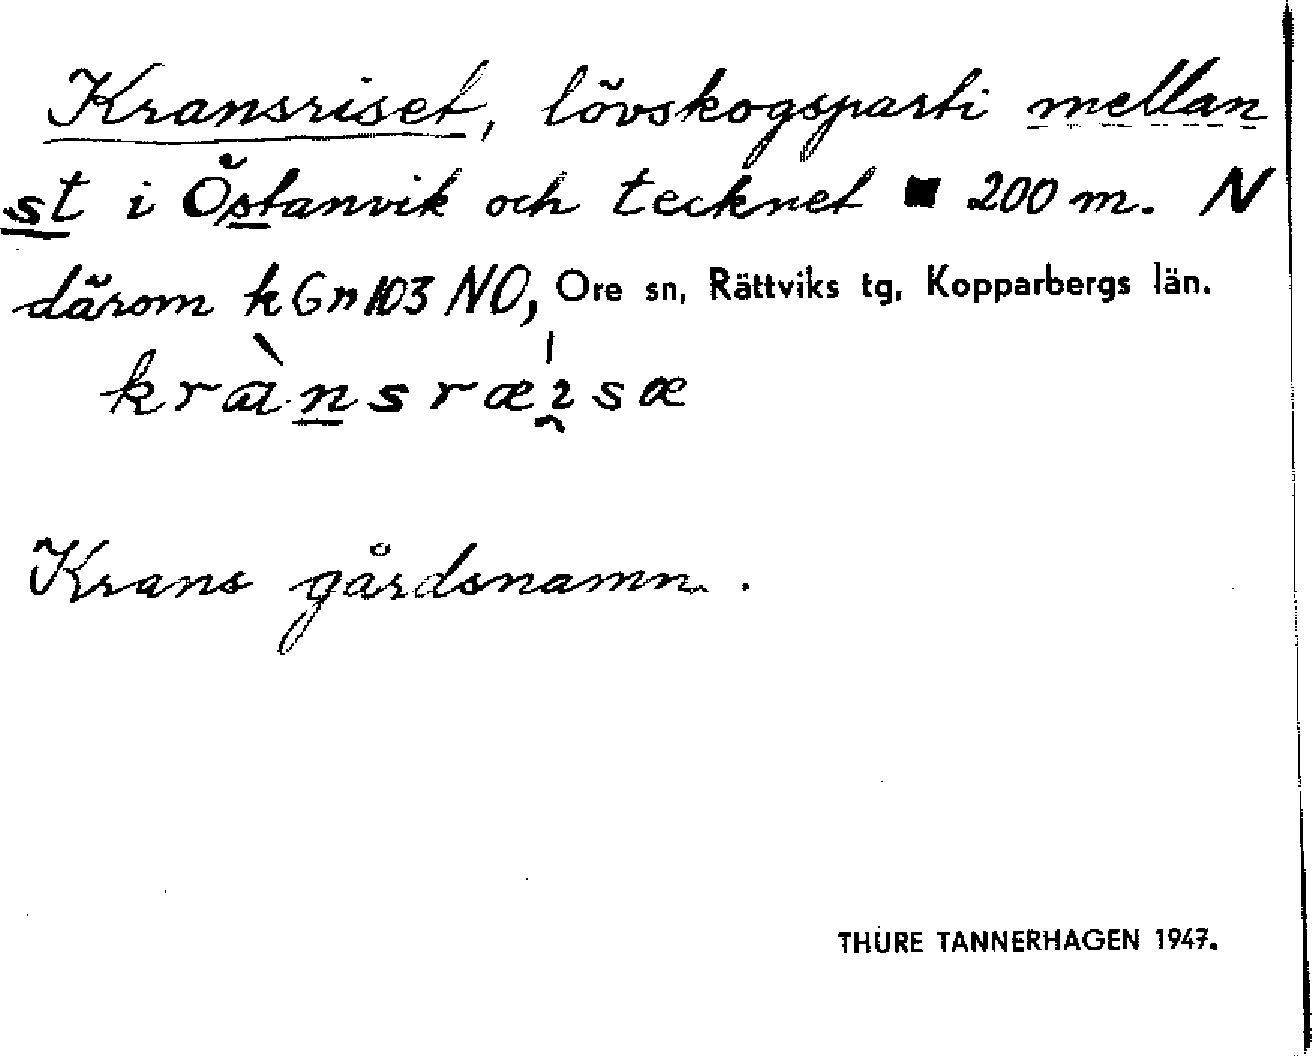 Kransriset, lövskogsparti mellan
st i Östanvik och tecknet ■ 200 m. N
därom k Gn 103 NO, Ore sn, Rättviks tg, Kopparbergs län.
Krans gårdsnamn.
THURE TANNERHAGEN 1947.